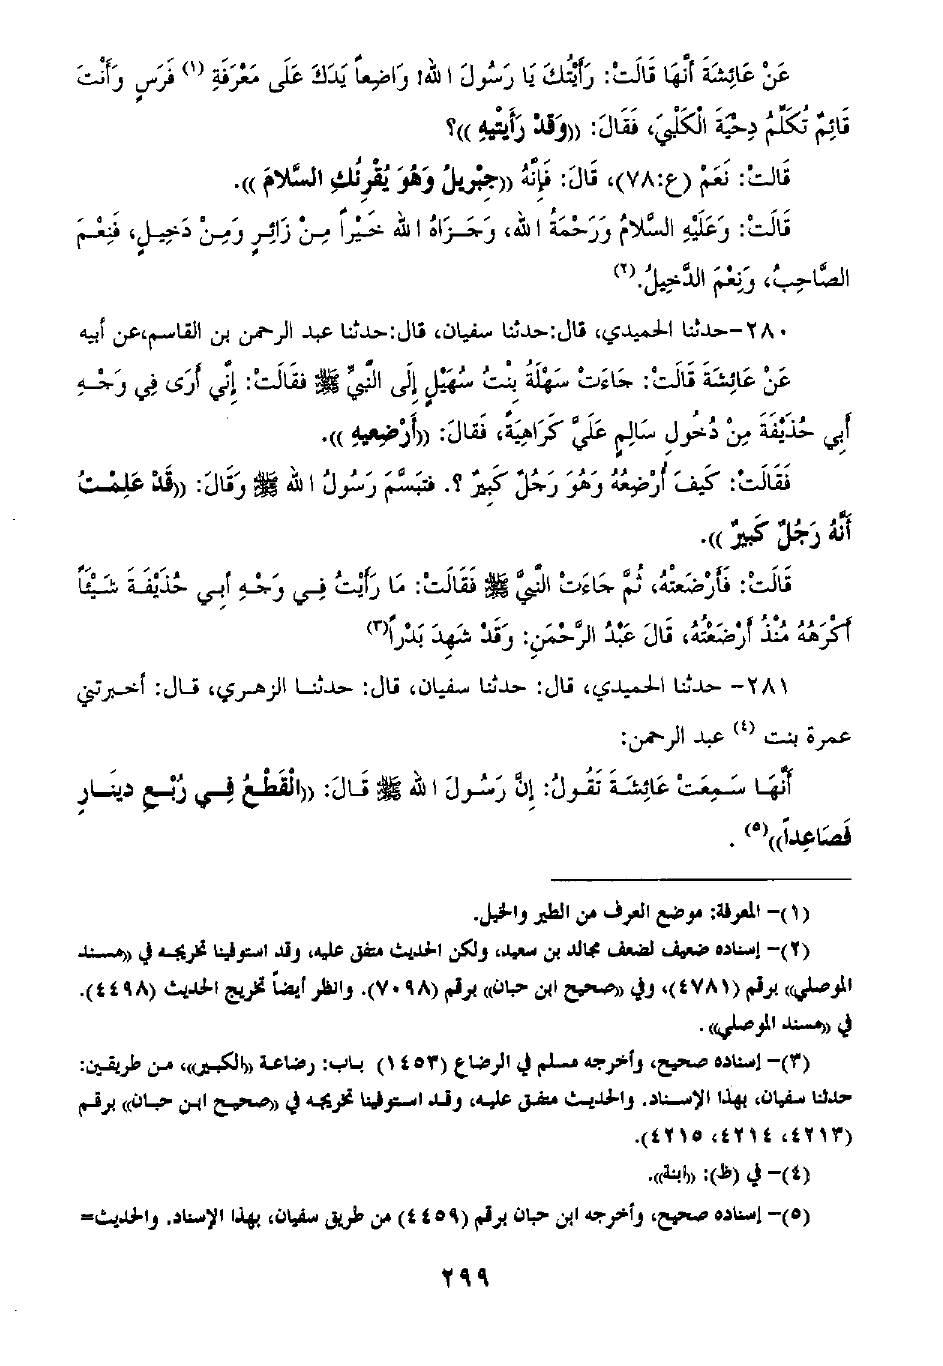 عَنْ عَائِشَةَ أَنَّهَا قَالَتْ: رَأَيْتُكَ يَا رَسُولَ اللهِ! وَاضِعاً يَدَكَ عَلَى مَعْرَفَةِ (١) فَرَسٍ وَأَنْتَ
قَائِمٌ تُكَلِّمُ دِحْيَةَ الْكَلْبِيِّ، فَقَالَ: ((وَقَدْ رَأَيْتِيهِ ))؟
قَالَتْ: نَعَمْ (ع:٧٨)، قَالَ: فَإِنَّهُ ((جِبْرِيلُ وَهُوَ يُقْرِئُكِ السَّلَامَ )).
قَالَتْ: وَعَلَيْهِ السَّلَامُ وَرَحْمَةُ اللهِ، وَجَزَاهُ اللهُ خَيْراً مِنْ زَائِرٍ وَمِنْ دَخِيلٍ، فَنِعْمَ
الصَّاحِبُ، وَنِعْمَ الدَّخِيلُ.(٢)
٢٨٠-حدثنا الحميدي، قال:حدثنا سفيان، قال:حدثنا عبد الرحمن بن القاسم،عن أبيه
عَنْ عَائِشَةَ قَالَتْ: جَاءَتْ سَهْلَةُ بِنْتُ سُهَيْلٍ إِلَى النَّبِيِّ ﷺ فقَالَتْ: إِنِّي أَرَى فِي وَجْهِ
أَبِي حُذَيْفَةَ مِنْ دُخُولِ سَالِمٍ عَلَيَّ كَرَاهِيَةً، فَقالَ: ((أَرْضِعِيهِ )).
فَقَالَتْ: كَيْفَ أُرْضِعُهُ وَهُوَ رَجُلٌ كَبِيرٌ ؟. فَتَبَسَّمَ رَسُولُ اللهِ ﷺ وَقَالَ: ((قَدْ عَلِمْتُ
أَنَّهُ رَجُلٌ كَبِيرٌ )).
قَالَتْ: فَأَرْضَعَتْهُ، ثُمَّ جَاءَتِ النَّبِيَّ ﷺ فَقَالَتْ: مَا رَأَيْتُ فِي وَجْهِ أَبِي حُذَيْفَةَ شَيْئاً
أَكْرَهُهُ مُنْذُ أَرْضَعْتُهُ، قَالَ عَبْدُ الرَّحْمَنِ: وَقَدْ شَهِدَ بَدْراً(٣)
٢٨١- حدثنا الحميدي، قال: حدثنا سفيان، قال: حدثنا الزهري، قال: أخبرتني
عمرة بنت (٤) عبد الرحمن:
أَنَّهَا سَمِعَتْ عَائِشَةَ تَقُولُ: إِنَّ رَسُولَ اللهِ ﷺ قَالَ: ((الْقَطْعُ فِي رُبْعِ دِينَارٍ
فَصَاعِداً))(٥) .
(١)- المعرفة: موضع العرف من الطير والخيل.
(٢)- إسناده ضعيف لضعف مجالد بن سعيد، ولكن الحديث متفق عليه، وقد استوفينا تخريجه في ((مسند
الموصلي)) برقم (٤٧٨١)، وفي ((صحيح ابن حبان)) برقم (٧٠٩٨). وانظر أيضاً تخريج الحديث (٤٤٩٨).
في ((مسند الموصلي)).
(٣)- إسناده صحيح، وأخرجه مسلم في الرضاع (١٤٥٣) باب: رضاعة ((الكبير))، من طريقين:
حدثنا سفيان، بهذا الإسناد. والحديث متفق عليه، وقد استوفينا تخريجه في ((صحيح ابن حبان)) برقم
(٤٢١٣، ٤٢١٤، ٤٢١٥).
(٤)- في (ظ): ((ابنة)).
(٥)- إسناده صحيح، وأخرجه ابن حبان برقم (٤٤٥٩) من طريق سفيان، بهذا الإسناد. والحديث=
٢٩٩